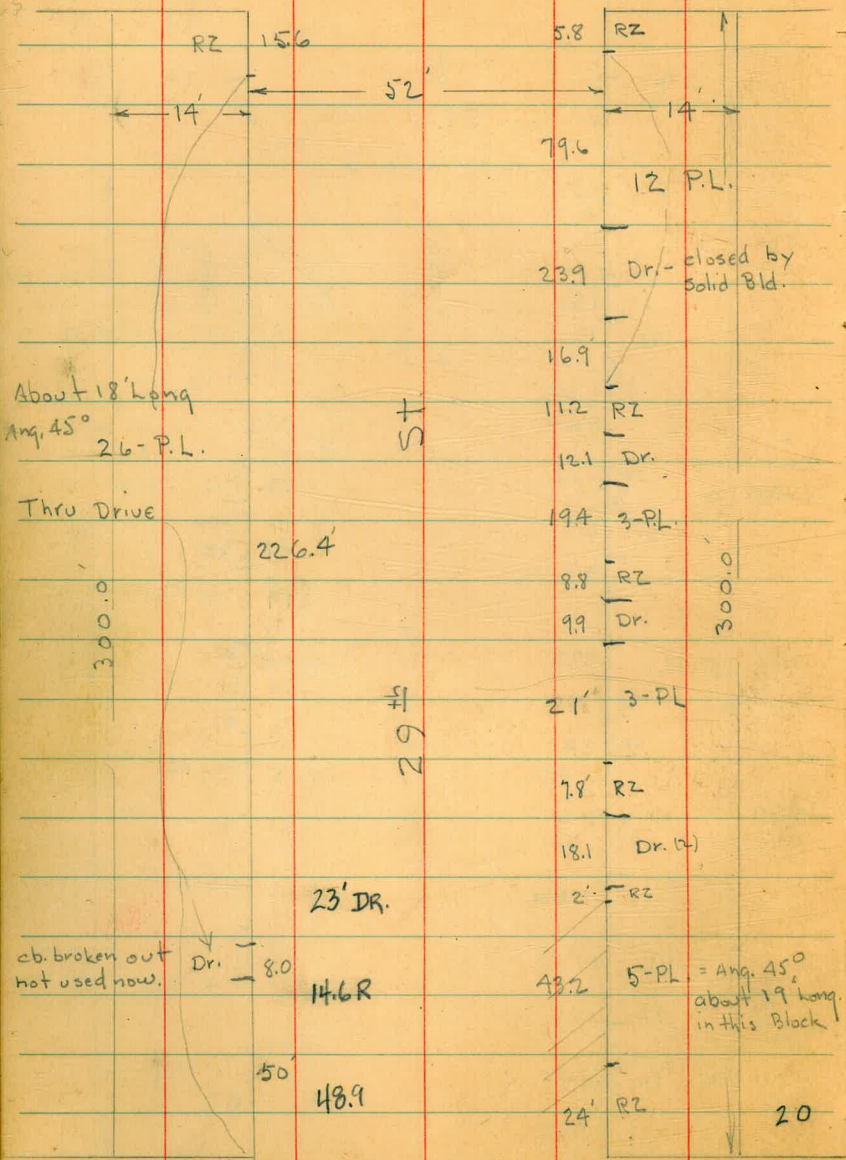 RZ 15.6 5.8 RZ
52'
14' 14'
79.6
12 P.L.
23.9 Dr.- closed by
Solid Bld.
16.9'
About 18' Long
Ang. 45°
26- P.L.
11.2 RZ
12.1 Dr.
St
Thru Drive
19.4 3-P.L.
226.4'
8.8 RZ
300.0' 300.0'
9.9 Dr.
21' 3-PL
29th
7.8' RZ
18.1 Dr. (2)
23' DR.
2' RZ
cb. broken out
not used now.
Dr. 8.0
14.6 R
43.2 5-PL. = Ang. 45°
about 19' Long.
in this Block
50'
48.9
24' RZ
20